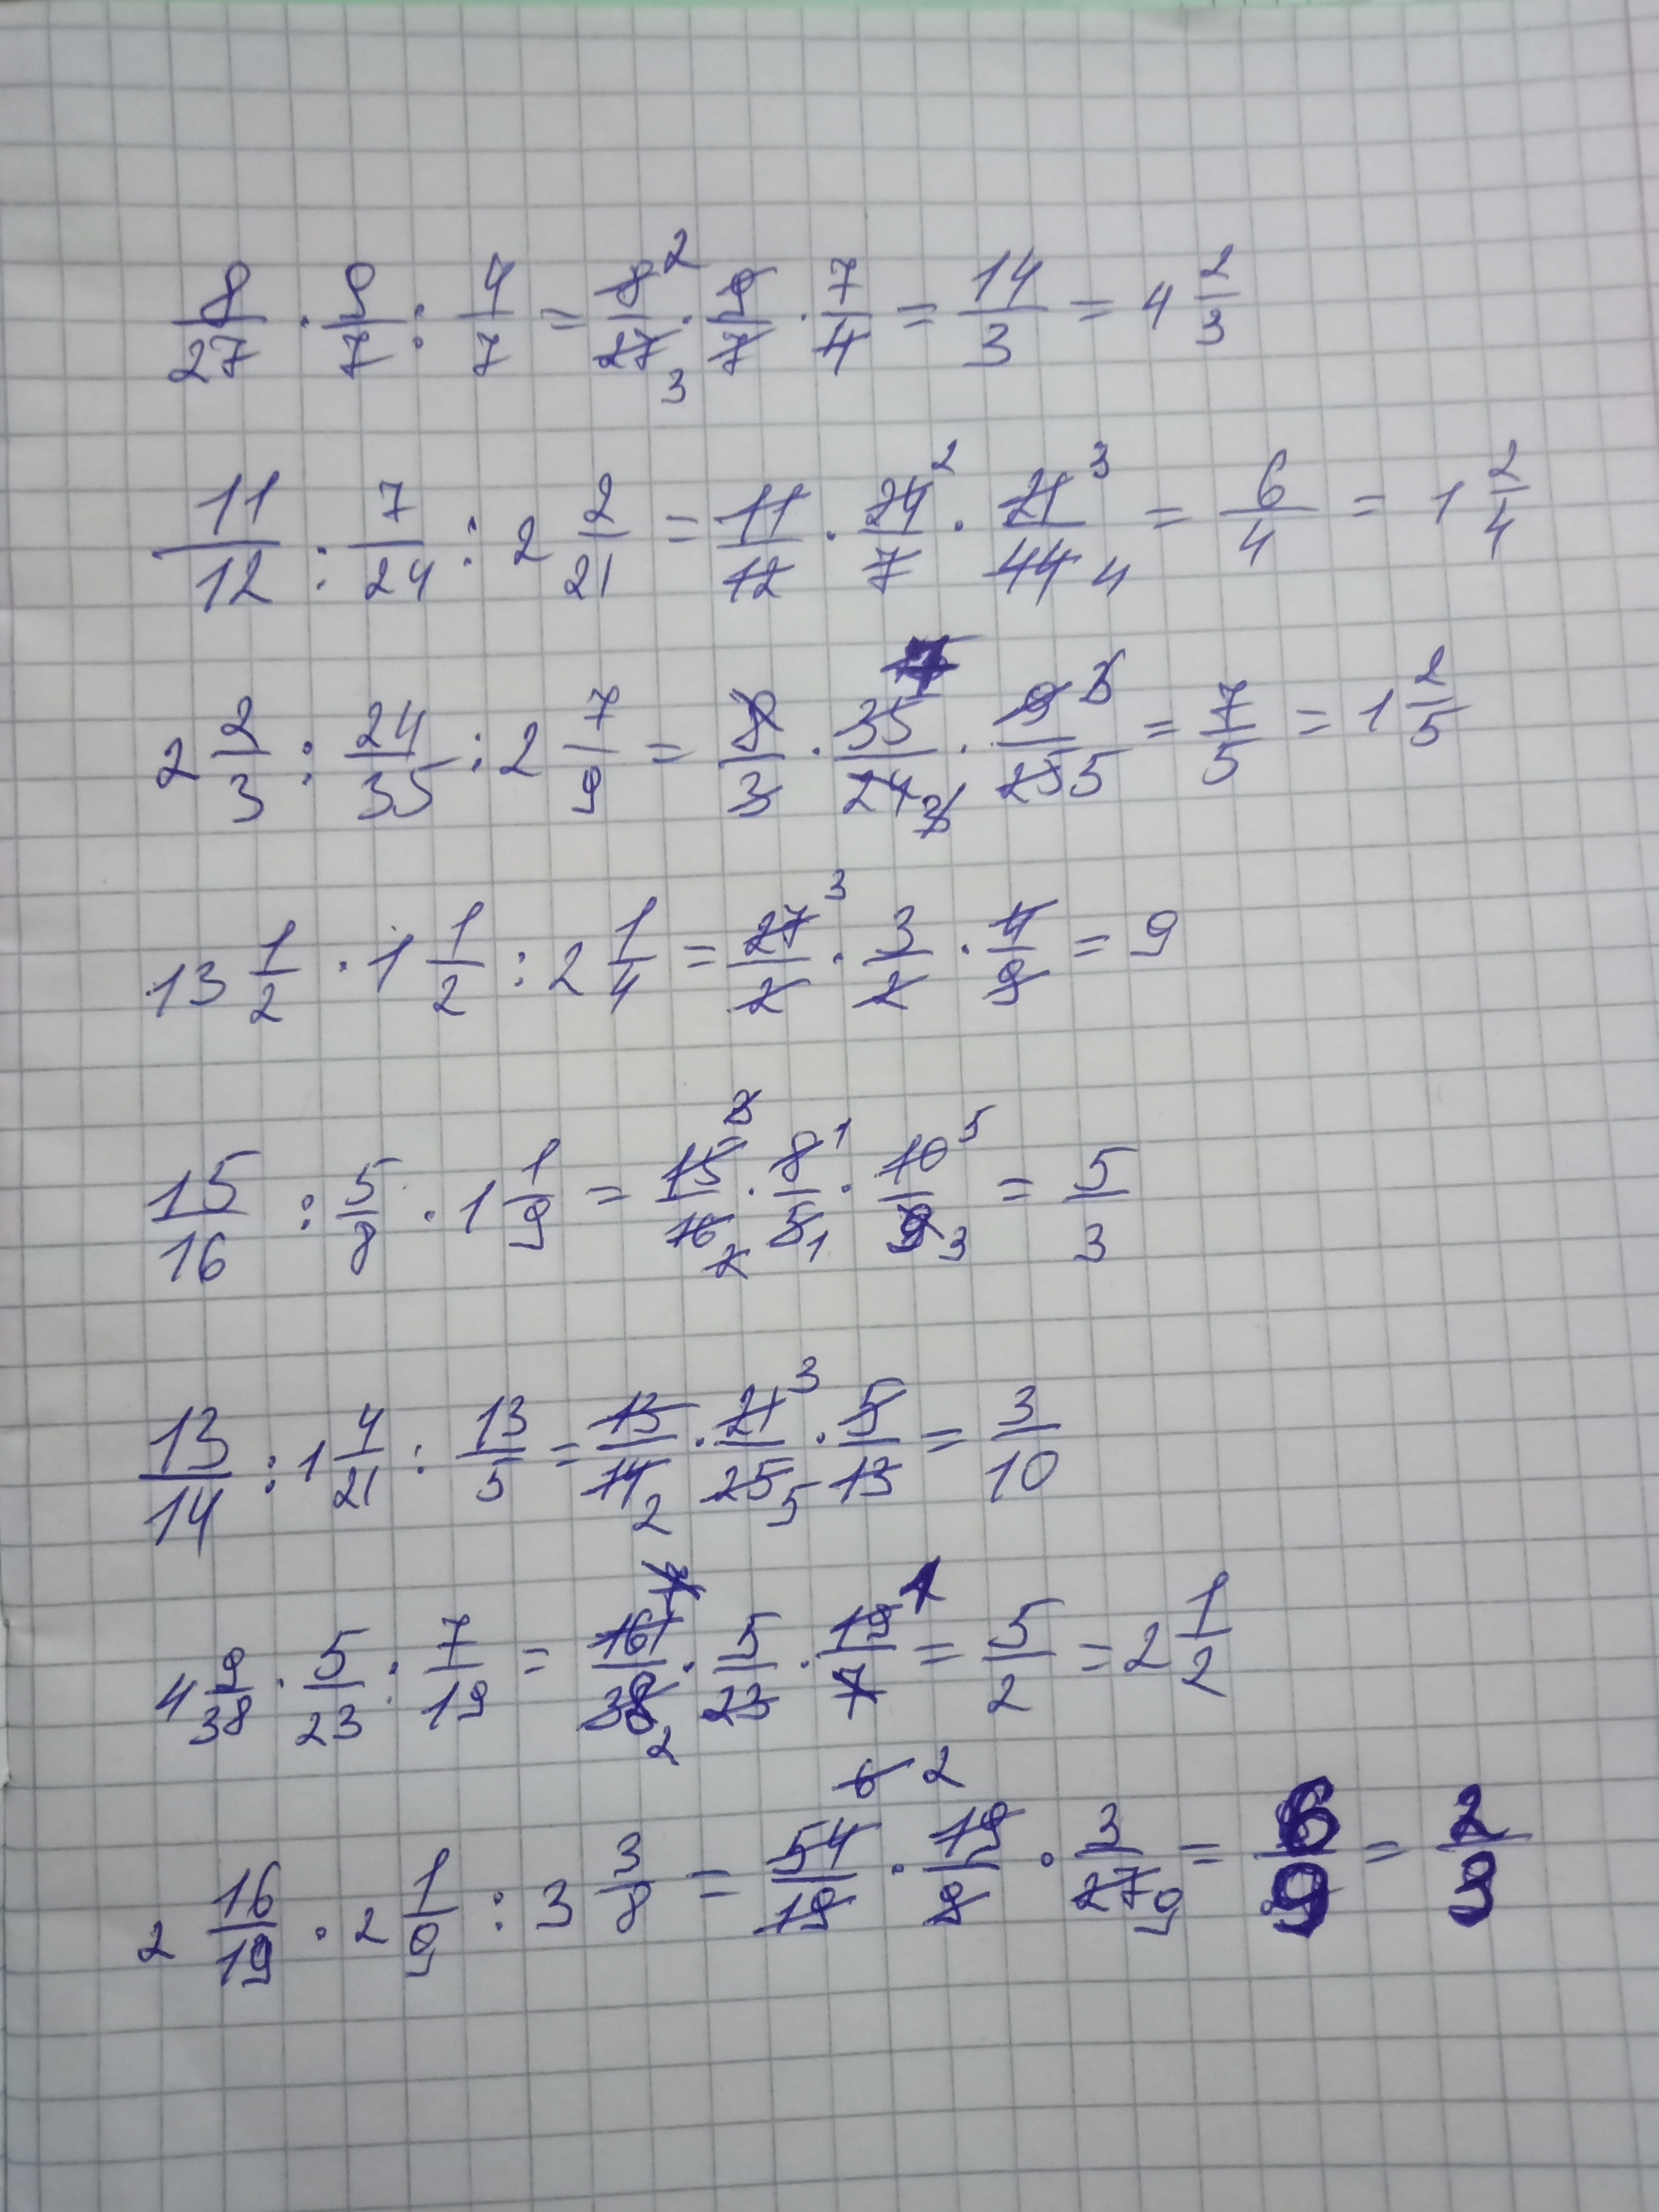 8/27 · 9/7 : 4/7 = 8 2/27 3 · 9/7 · 7/4 = 14/3 = 4 2/3
11/12 : 7/24 : 2 2/21 = 11/12 · 24 2/7 · 21 3/44 4 = 6/4 = 1 2/4
2 2/3 : 24/35 : 2 7/9 = 8/3 · 35 7/24 3 · 9 3/25 5 = 7/5 = 1 2/5
13 1/2 · 1 1/2 : 2 1/4 = 27 3/2 · 3/2 · 4/9 = 9
15/16 : 5/8 · 1 1/9 = 15 3/16 2 · 8 1/5 1 · 10 5/9 3 = 5/3
13/14 : 1 4/21 : 13/5 = 13/14 2 · 21 3/25 5 · 5/13 = 3/10
4 9/38 · 5/23 : 7/19 = 161 7/38 2 · 5/23 · 19 1/7 = 5/2 = 2 1/2
2 16/19 · 2 1/9 : 3 3/8 = 54 6 2/19 · 19/8 · 3/27 9 = 6/9 = 2/3